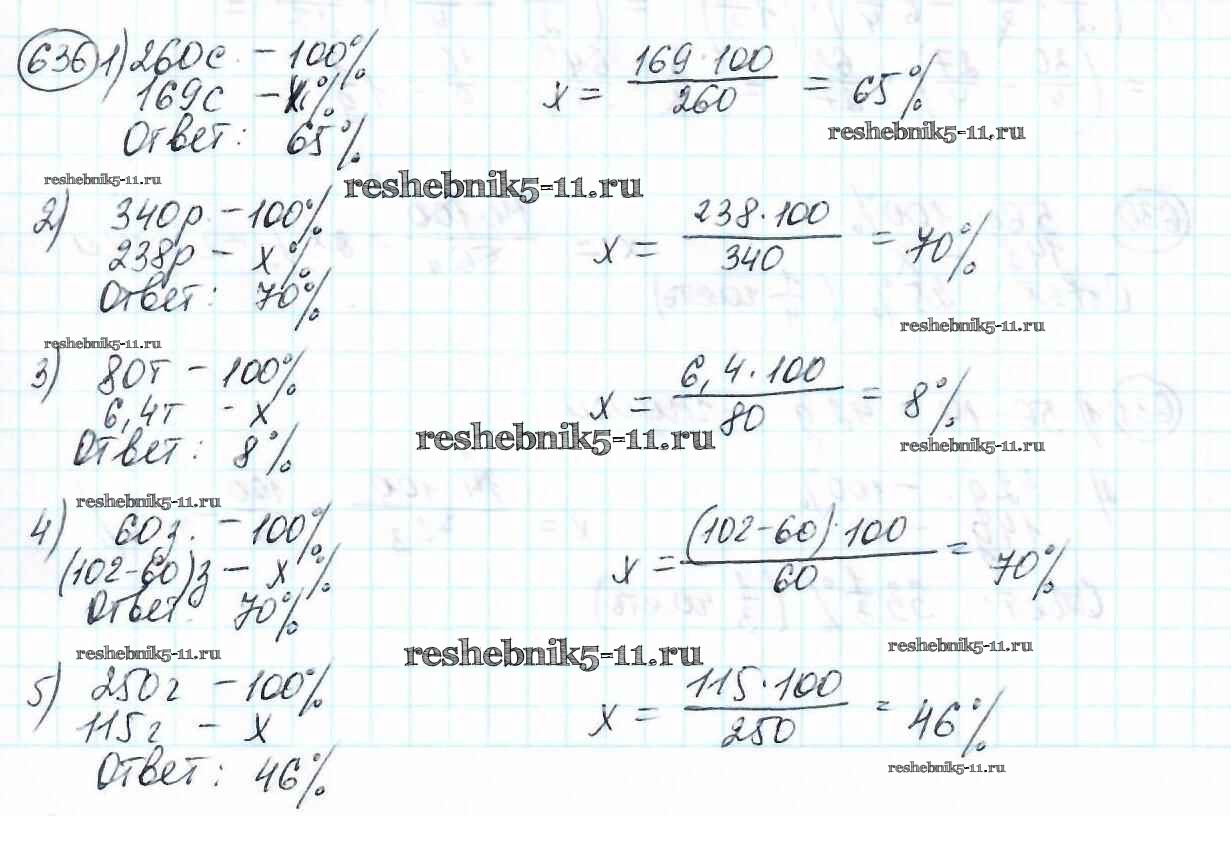 636 1) 260с - 100%
169с - x%
x = 169·100 / 260 = 65%
Ответ: 65%
reshebnik5-11.ru
reshebnik5-11.ru
reshebnik5-11.ru
2) 340р - 100%
238р - x%
x = 238·100 / 340 = 70%
Ответ: 70%
reshebnik5-11.ru
reshebnik5-11.ru
3) 80т - 100%
6,4т - x
x = 6,4·100 / 80 = 8%
Ответ: 8%
reshebnik5-11.ru
reshebnik5-11.ru
reshebnik5-11.ru
4) 60з. - 100%
(102-60)з - x%
x = (102-60)·100 / 60 = 70%
Ответ: 70%
reshebnik5-11.ru
reshebnik5-11.ru
reshebnik5-11.ru
5) 250г - 100%
115г - x
x = 115·100 / 250 = 46%
Ответ: 46%
reshebnik5-11.ru